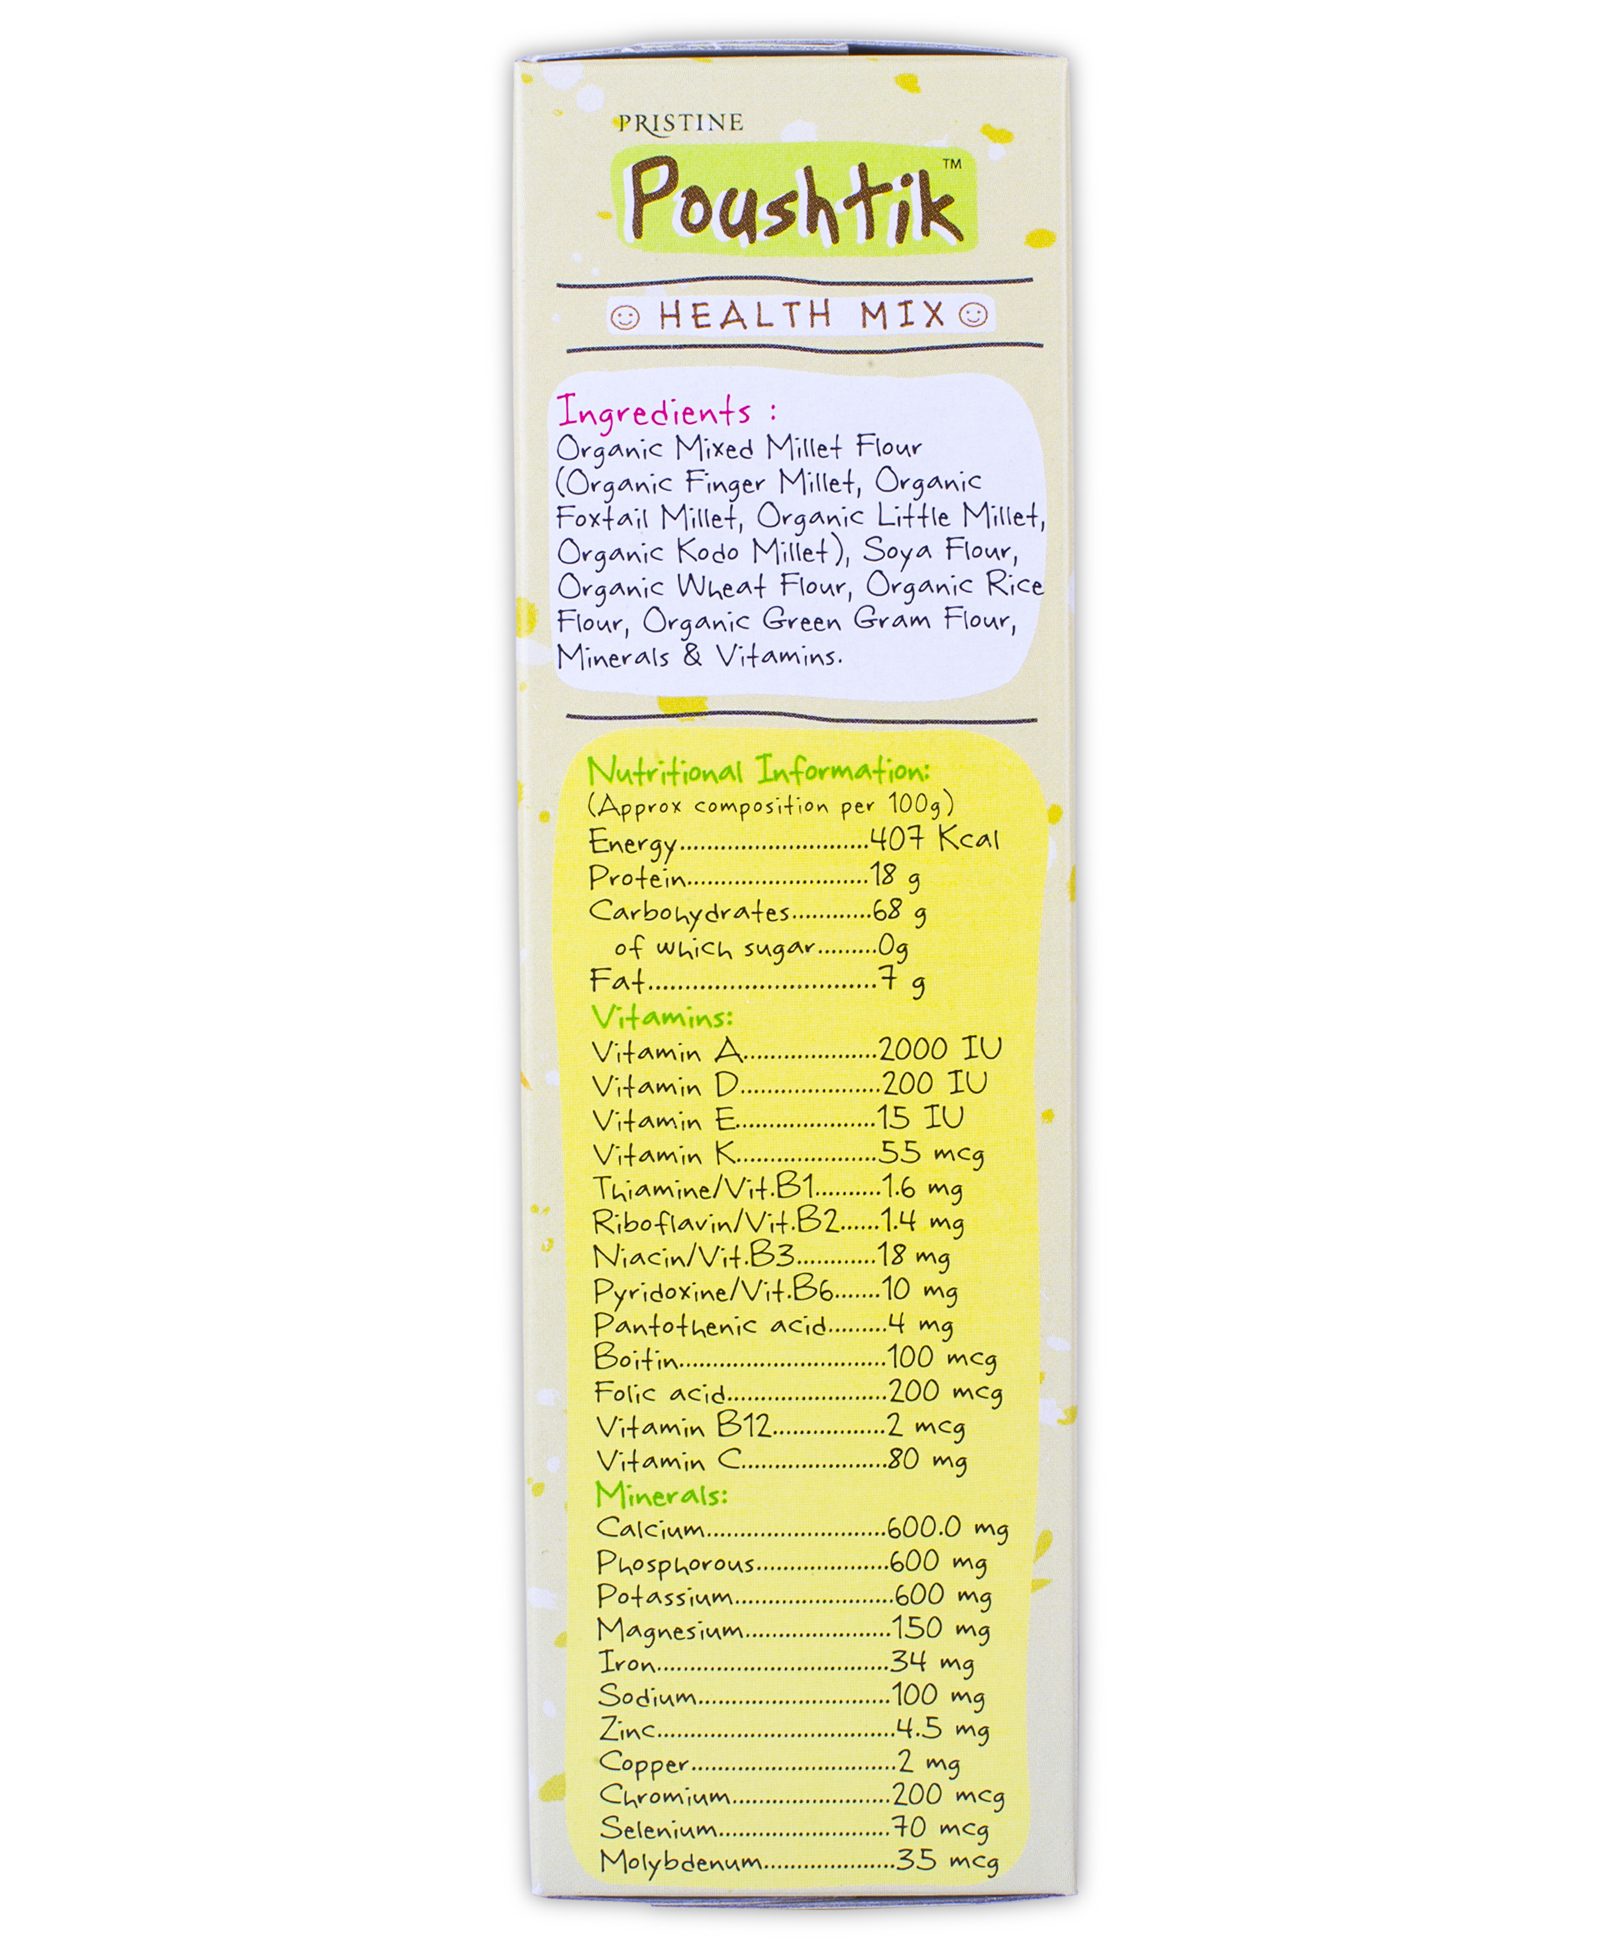 PRISTINE
Poushtik™
HEALTH MIX
Ingredients :
Organic Mixed Millet Flour
(Organic Finger Millet, Organic
Foxtail Millet, Organic Little Millet,
Organic Kodo Millet), Soya Flour,
Organic Wheat Flour, Organic Rice
Flour, Organic Green Gram Flour,
Minerals & Vitamins.
Nutritional Information:
(Approx composition per 100g)
Energy............................407 Kcal
Protein...........................18 g
Carbohydrates............68 g
of which sugar.........0g
Fat..................................7 g
Vitamins:
Vitamin A....................2000 IU
Vitamin D.....................200 IU
Vitamin E.....................15 IU
Vitamin K.....................55 mcg
Thiamine/Vit.B1..........1.6 mg
Riboflavin/Vit.B2......1.4 mg
Niacin/Vit.B3............18 mg
Pyridoxine/Vit.B6.......10 mg
Pantothenic acid.........4 mg
Boitin...............................100 mcg
Folic acid........................200 mcg
Vitamin B12.................2 mcg
Vitamin C......................80 mg
Minerals:
Calcium...........................600.0 mg
Phosphorous....................600 mg
Potassium........................600 mg
Magnesium......................150 mg
Iron...................................34 mg
Sodium.............................100 mg
Zinc....................................4.5 mg
Copper...............................2 mg
Chromium........................200 mcg
Selenium..........................70 mcg
Molybdenum....................35 mcg